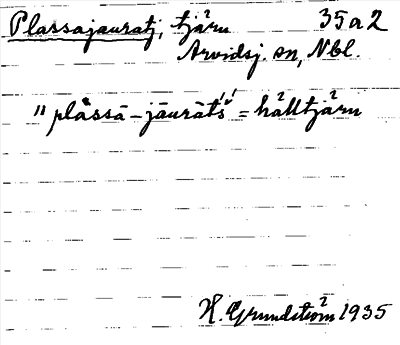 Plassajauratj, tjärn 35 a 2
Arvidsj. sn, Nbl.
" plåssā-jāurātś' = hålltjärn
H. Grundström 1935